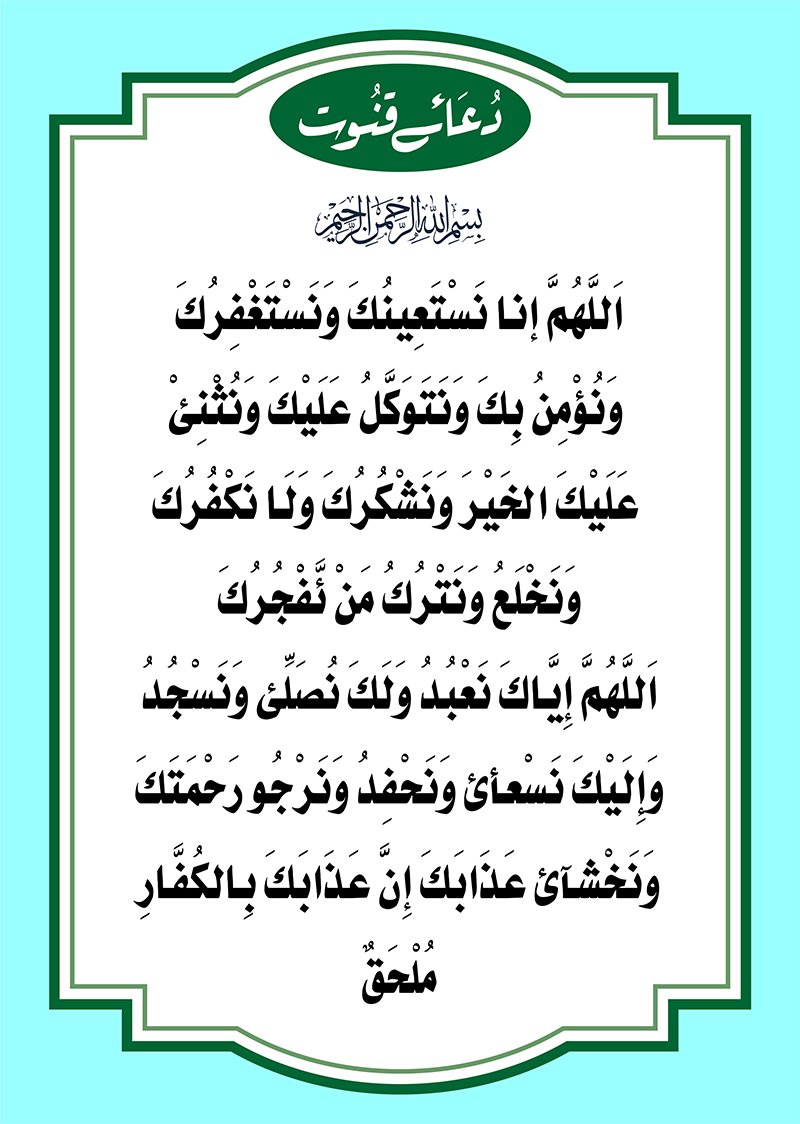 دُعَائے قنُوت
بِسْمِ اللهِ الرَّحْمٰنِ الرَّحِيْمِ
اَللَّهُمَّ إنا نَسْتَعِينُكَ وَنَسْتَغْفِرُكَ
وَنُؤْمِنُ بِكَ وَنَتَوَكَّلُ عَلَيْكَ وَنُثْنِئْ
عَلَيْكَ الخَيْرَ وَنَشْكُرُكَ وَلَا نَكْفُرُكَ
وَنَخْلَعُ وَنَتْرُكُ مَنْ ئَّفْجُرُكَ
اَللَّهُمَّ إِيَّاكَ نَعْبُدُ وَلَكَ نُصَلِّئ وَنَسْجُدُ
وَإِلَيْكَ نَسْعأئ وَنَحْفِدُ وَنَرْجُو رَحْمَتَكَ
وَنَخْشآئ عَذَابَكَ إِنَّ عَذَابَكَ بِالكُفَّارِ
مُلْحَقٌ